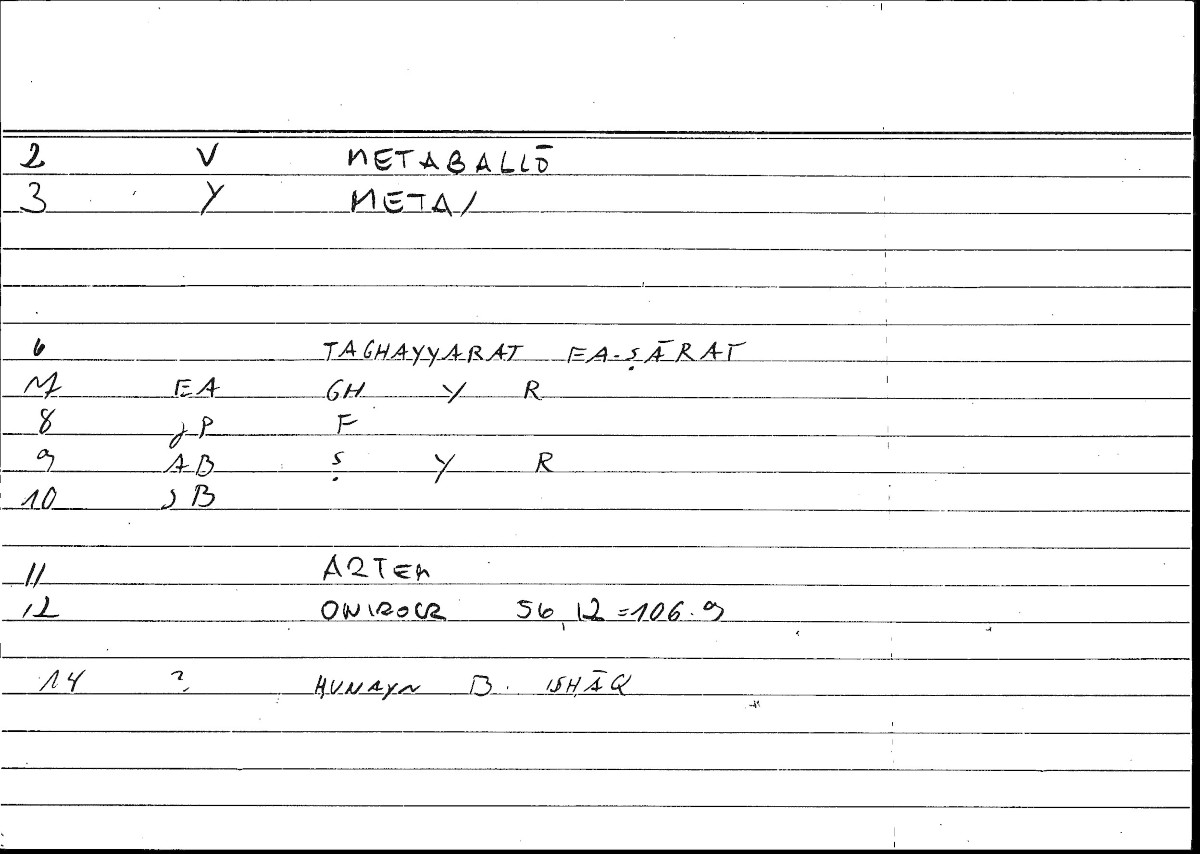 2 V METABALLŌ
3 Y META/
6 TAGHAYYARAT FA-ṢĀRAT
7 EA GH Y R
8 JP F
9 AB Ṣ Y R
10 JB
11 ARTEM
12 ONIROCR 56,12=106.9
14 ? ḤUNAYN B. ISḤĀQ